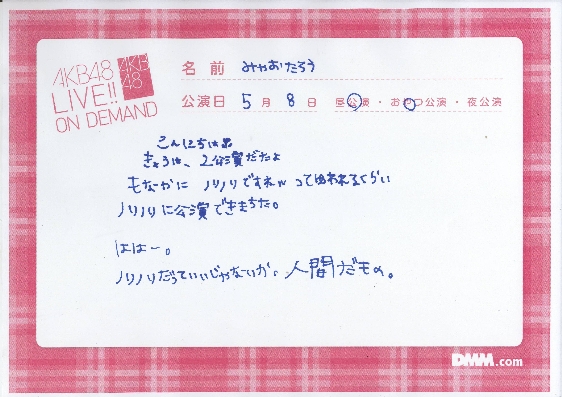 AKB48
LIVE!!
ON DEMAND
AKB
48
名前 みゃおたろう
公演日 5月8日 昼公演・おやつ公演・夜公演
こんにちは
きょうは、2公演だたよ
もなかに ノリノリですねw ってゆわれるくらい
ノリノリに公演できまちた。
ははー。
ノリノリだっていいじゃないか。人間だもの。
DMM.com